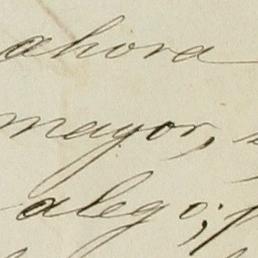 ahora
mayor,
alego;